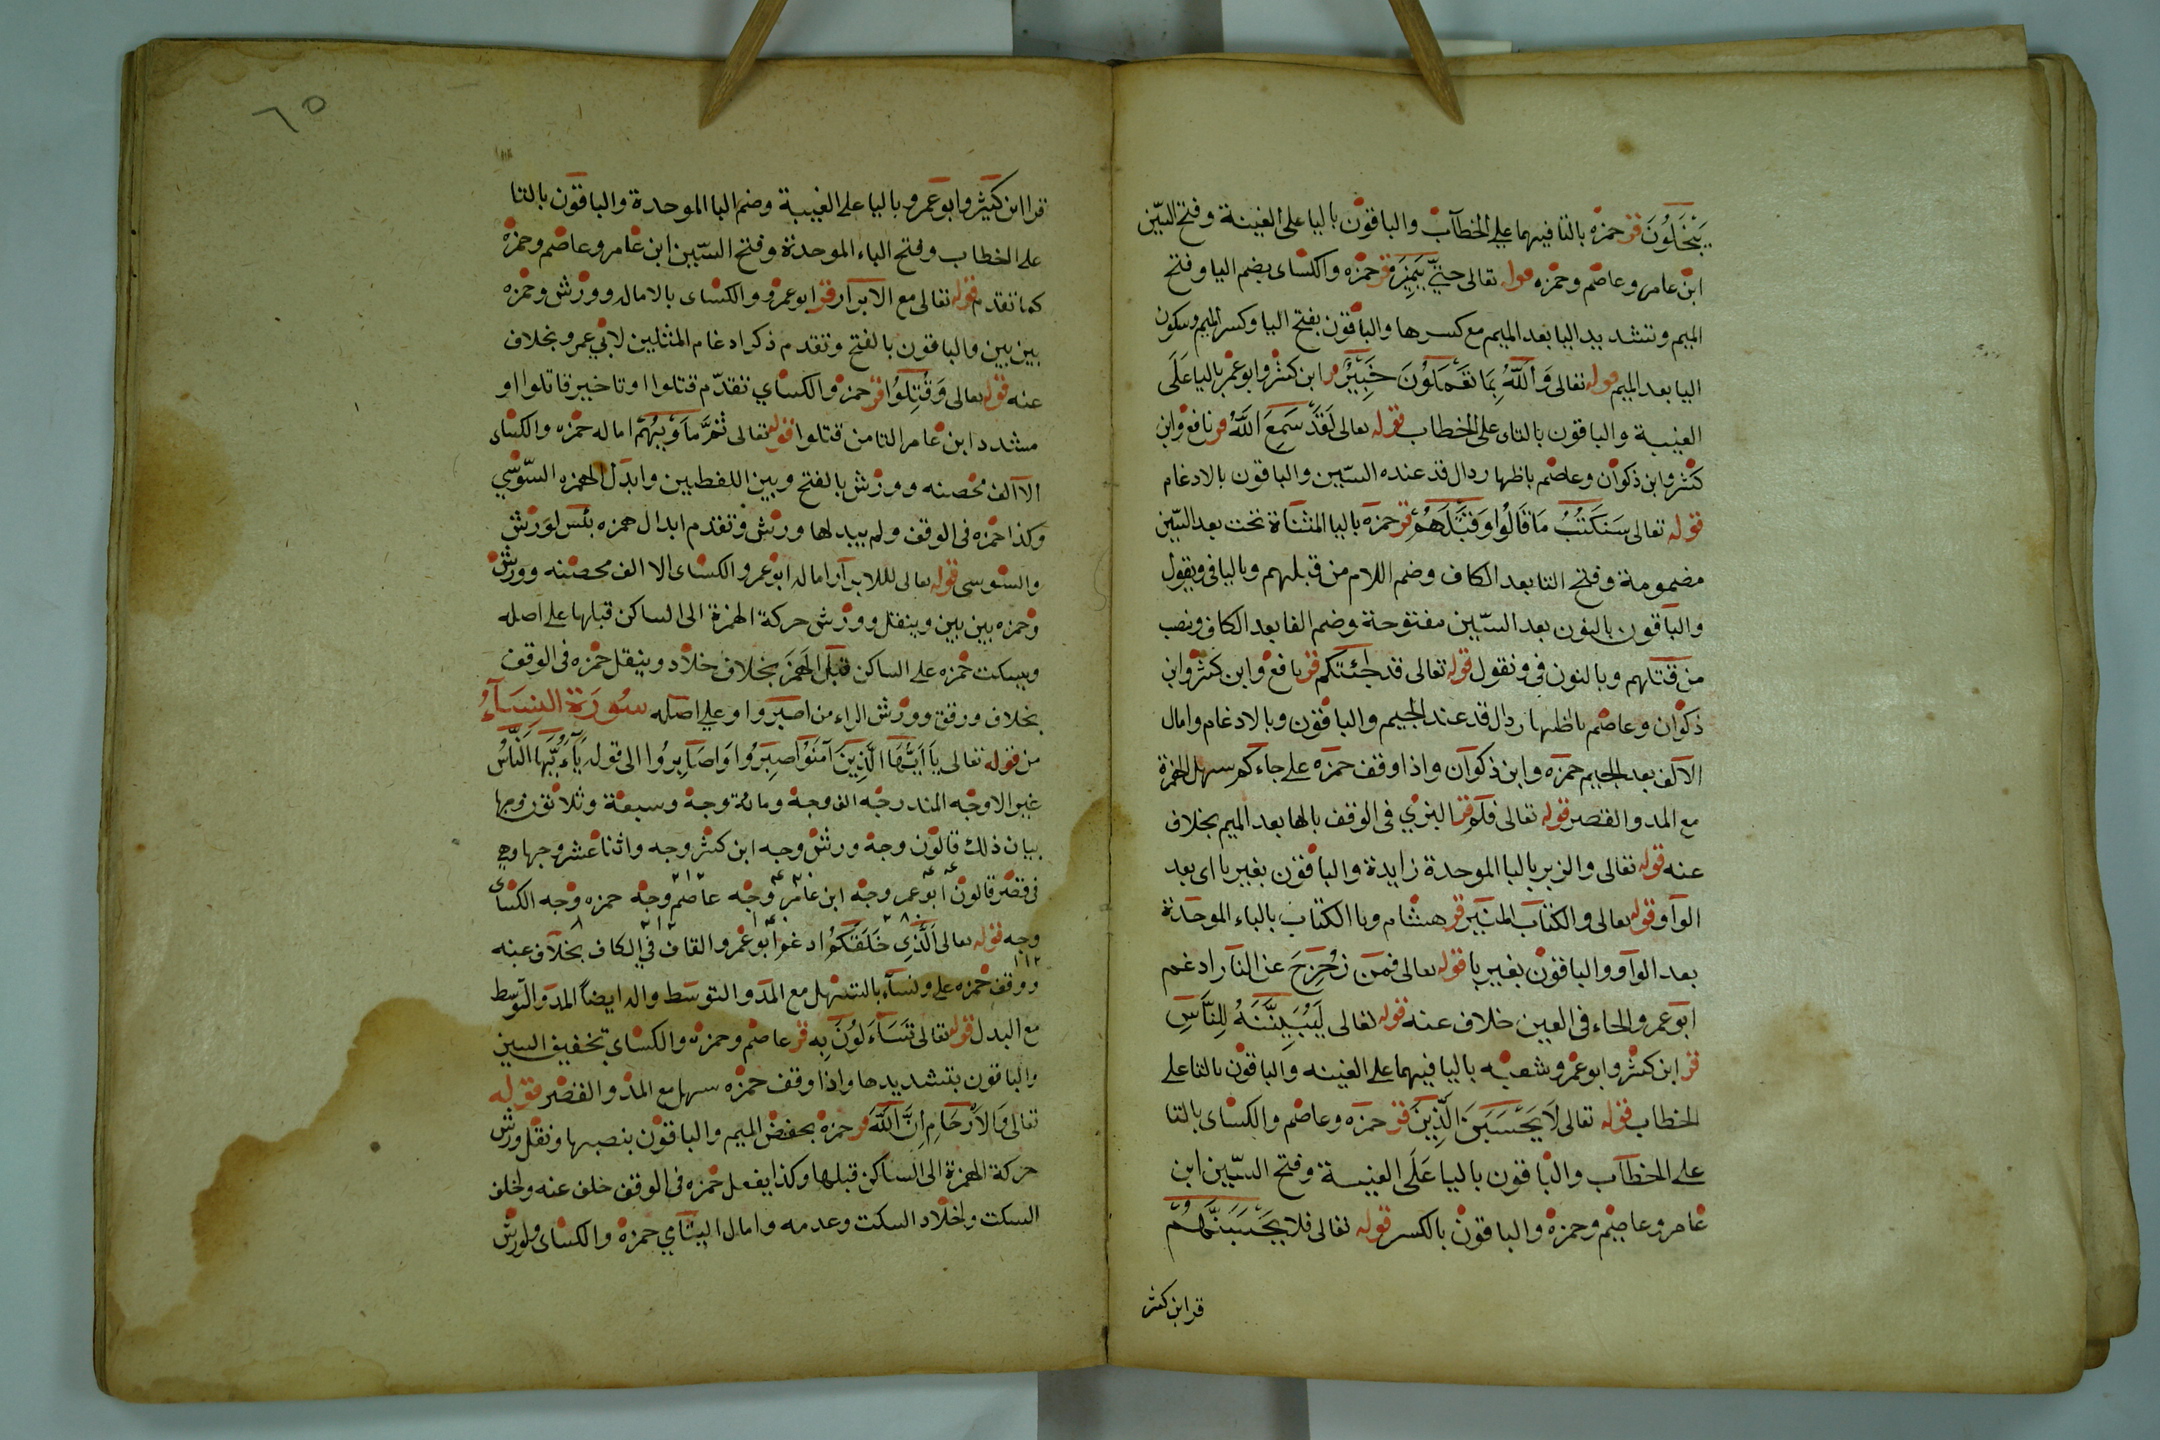 يبخلون قر حمزه بالتا فيهما على الخطاب والباقون باليا على الغيبة وفتح السّين
ابن عامر وعاصم وحمزه قوله تعالى حتىّ يميز قر حمزه والكساى بضم اليا وفتح
الميم وتشديد اليا بعد الميم مع كسرها والباقون بفتح اليا وكسر الميم وسكون
اليا بعد الميم قوله تعالى وَاللّهُ بِمَا تَعْمَلُونَ خَبِيْرٌ قر ابن كثر وابو عمر باليا عَلَى
الغيبة والباقون بالتاء على الخطاب قوله تعالى لَقَدْ سَمِعَ اللَّهُ قر نافع وابن
كثر وابن ذكوان وعاصم باظهار دال قد عنده السّين والباقون بالادغام
قوله تعالى سَنَكْتُبُ مَا قَالُوا وَقَتْلَهُمُ قر حمزه باليا المثناة تحت بعد السّين
مضمومة وفتح التا بعد الكاف وضم اللام من قبلهم وباليا فى ويقول
والباقون بالنون بعد السّين مفتوحة وضم الفا بعد الكاف ونصب
من قتلهم وبالنون فى ونقول قوله تعالى قد جئتكم قر نافع وابن كثر وابن
ذكوان وعاصم باظهار دال قد عند الجيم والباقون وبالادغام وامال
الآلف بعد الجيم حمزه وابن ذكوان واذا وقف حمزه على جاءكم سهل الهمزة
مع المد والقصر قوله تعالى فلم قر البزي فى الوقف بالها بعد الميم بخلاف
عنه قوله تعالى والزبر بالبا الموحدة زايدة والباقون بغير با اى بعد
الواو قوله تعالى والكتاب المنير قر هشام وبا الكتاب بالباء الموحدة
بعد الواو والباقون بغير با قوله تعالى فمن زُحْزِحَ عن النار ادغم
ابو عمر والحاء فى العين خلاف عنه قوله تعالى لَيُبَيِنَّنَهُ لِلنَّاسِ
قر ابن كثر وابو عمر وشعبه باليا فيهما على الغيبه والباقون بالتا على
الخطاب قوله تعالى لَا يَحْسَبَنَّ الَّذِينَ قر حمزه وعاصم والكساى بالتا
على الخطاب والباقون باليا عَلَى الغيبة وفتح السّين ابن
عامر وعاصم وحمزه والباقون بالكسر قوله تعالى فلا يَحْسَبَنَّهُمْ
قر ابن كثر
٦٥
قرا ابن كثير وابو عمرو باليا على الغيبة وضم البا الموحدة والباقون بالتا
على الخطاب وفتح الباء الموحدة وفتح السّين ابن عامر وعاصم وحمزه
كما تقدم قوله تعالى مع الابرار قر ابو عمرو والكساى بالاماله وورش وحمزه
بين بين والباقون بالفتح وتقدم ذكر ادغام المثلين لابي عمرو بخلاف
عنه قوله تعالى وَقُتِلُوا قر حمزه والكساي تقدّم قتلوا او تاخير قاتلوا او
مشدد ابن عامر التا من قتلوا قوله تعالى ثُمَّ مَأْوَيهُمْ اماله حمزه والكساى
الا الف محضنه وورش بالفتح وبين اللفطين وابدل الهمزه السّوسي
وكذا حمزه فى الوقف ولم يبدلها ورش وتقدم ابدال همزه بئس لورش
والسوسى قوله تعالى للابرار اماله ابو عمر والكساى الا الف محضنه وورش
وحمزه بين بين وينقل وورش حركة الهمزة الى الساكن قبلها على اصله
ويسكت حمزه على الساكن قبل الهمز بخلاف خلاد وينقل حمزه فى الوقف
بخلاف ورقق وورش الراء من اصبروا وعلى اصله سُورَة النِسَآءُ
من قوله تعالى يَا اَيُّهَا الَّذِينَ آمَنُوا صِبرُوا وَصَابِرُوا الى قوله يَآءَيُّهَا النَّاسُ
غير الاوجه المندرجه الف وجه ومائة وجه وسبعة وثلاثون وجها
بيان ذلك قالون وجه ورش وجه ابن كثر وجه واثنا عشر وجها وهي
فى قصر قالون ابو عمر وجه ابن عامر وجه عاصم وجه حمزه وجه الكساى
وجه قوله تعالى اَلَّذِى خَلَقَكُمْ ادغم ابو عمر والقاف في الكاف بخلاف عنه
ووقف حمزه على ونسآء بالتسهل مع المد والتوسط وله ايضاً المد والتوسّط
مع البدل قوله تعالى تَسَاءَلُوْنَ بِه قر عاصم وحمزه والكساي بتخفيف السين
والباقون بتشديدها واذا وقف حمزه سهل مع المد والقصر قوله
تعالى وَالاَرْحَامِ اِنَّ اللَّهَ قر حمزه بخفض الميم والباقون بنصبها ونقل ورش
حركة الهمزة الى الساكن قبلها وكذا يفعل حمزه فى الوقف خلف عنه ولخلف
السكت ولخلاد السكت وعدمه وامال اليتامي حمزه والكساى ولورش